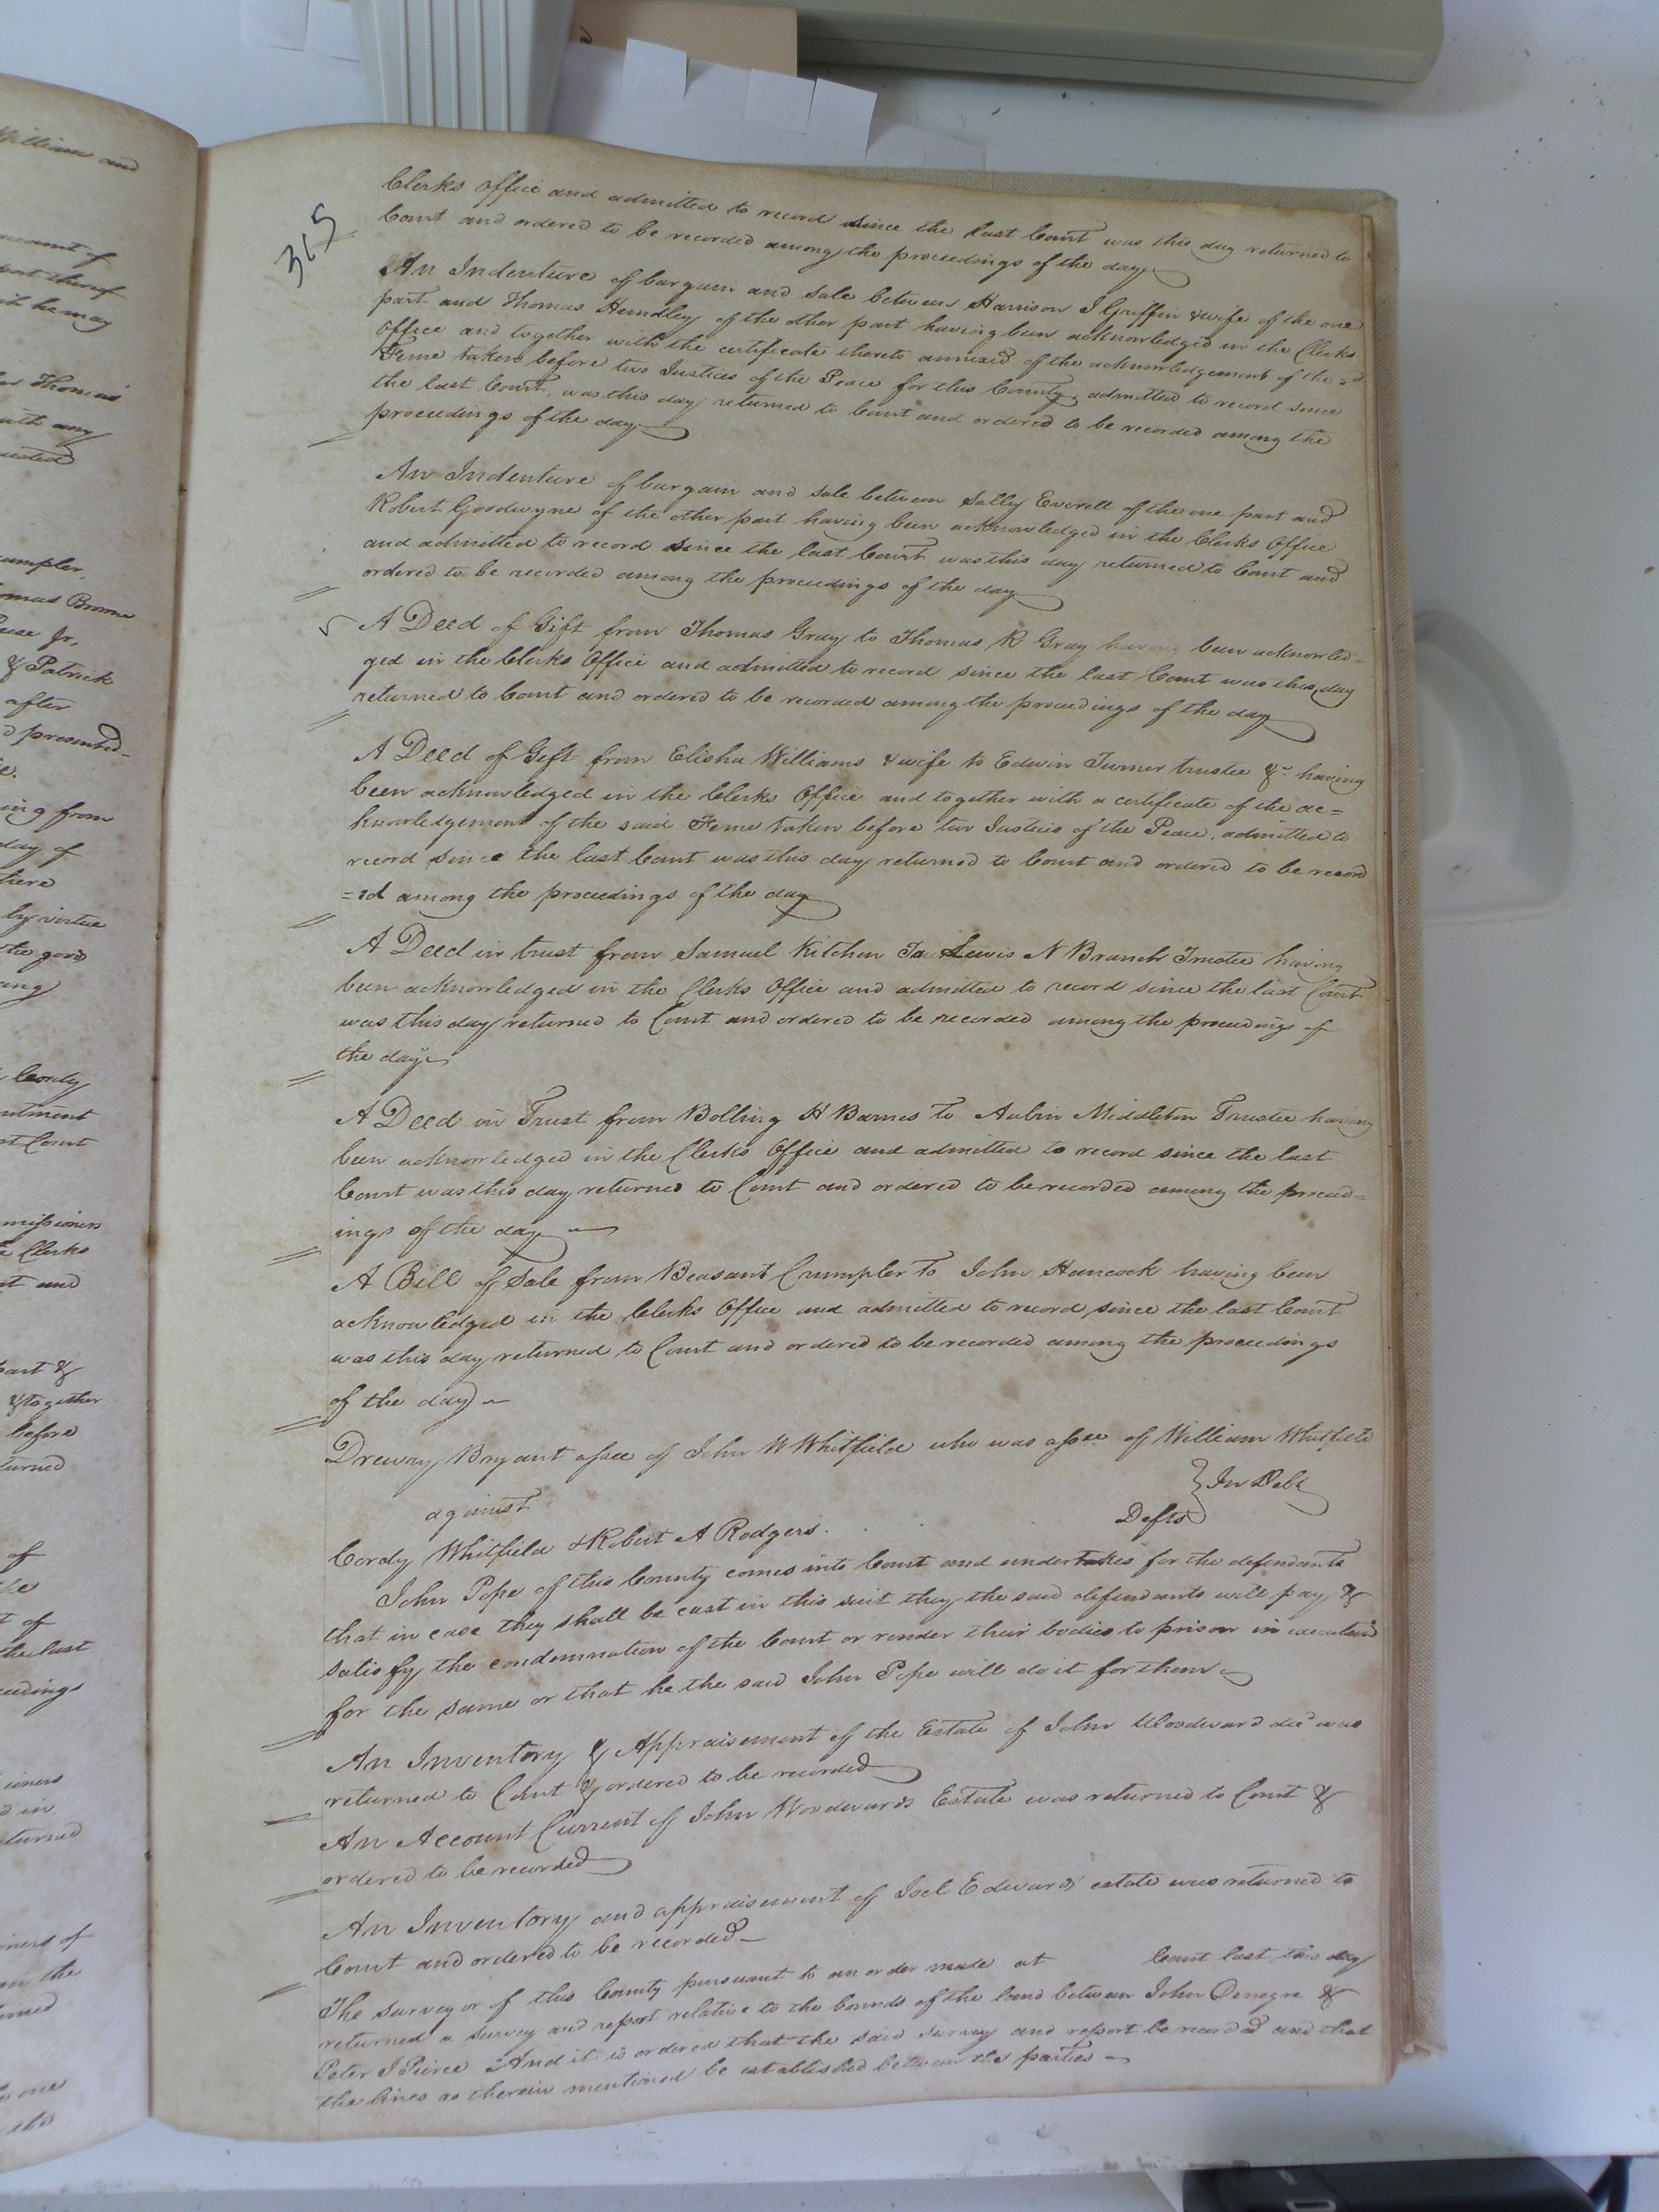 315
Clerks office and admitted to record since the last Court was this day returned to
Court and ordered to be recorded among the proceedings of the day
An Indenture of bargain and sale between Harrison J Griffin & wife of the one
part and Thomas Hundley of the other part having been acknowledged in the Clerks
Office and together with the certificate thereto annexed of the acknowledgement of the sd
Feme taken before two Justices of the Peace for this County, admitted to record since
the last Court, was this day returned to Court and ordered to be recorded among the
proceedings of the day
An Indenture of bargain and sale between Salley Everett of the one part and
Robert Goodwyne of the other part having been acknowledged in the Clerks Office
and admitted to record since the last Court was this day returned to Court and
ordered to be recorded among the proceedings of the day
A Deed of Gift from Thomas Gray to Thomas R Gray having been acknowled=
ged in the Clerks Office and admitted to record since the last Court was this day
returned to Court and ordered to be recorded among the proceedings of the day
A Deed of Gift from Elisha Williams & wife to Edwin Turner trustee &c having
been acknowledged in the Clerks Office and together with a certificate of the ac=
knowledgement of the said Feme taken before two Justices of the Peace, admitted to
record since the last Court was this day returned to Court and ordered to be record
=ed among the proceedings of the day
A Deed in trust from Samuel Kitchen To Lewis N Branch Trustee having
been acknowledged in the Clerks Office and admitted to record since the last Court
was this day returned to Court and ordered to be recorded among the proceedings of
the day
A Deed in Trust from Bolling H Barnes To Aubin Middleton Trustee having
been acknowledged in the Clerks Office and admitted to record since the last
Court was this day returned to Court and ordered to be recorded among the proceed=
ings of the day
A Bill of Sale from Beasant Crumpler To John Hancock having been
acknowledged in the Clerks Office and admitted to record since the last Court
was this day returned to Court and ordered to be recorded among the proceedings
of the day
Drewry Bryant assee of John W Whitfield who was assee of William Whitfield
against } In Debt
Cordy Whitfield & Robert A Rodgers. Defts
John Pope of this County comes into Court and undertakes for the defendants
that in case they shall be cast in this suit they the said defendants will pay &
satisfy the condemnation of the Court or render their bodies to prison in execution
for the same or that he the said John Pope will do it for them
An Inventory & Appraisement of the Estate of John Woodward decd was
returned to Court & ordered to be recorded
An Account Current of John Woodwards Estate was returned to Court &
ordered to be recorded
An Inventory and appraisement of Joel Edwards' estate was returned to
Court and ordered to be recorded
The surveyor of this County pursuant to an order made at Court last, this day
returned a survey and report relative to the bounds of the land between John Denegre &
Peter J Peirce And it is ordered that the said survey and report be recorded and that
the lines as therein mentioned be established between the parties